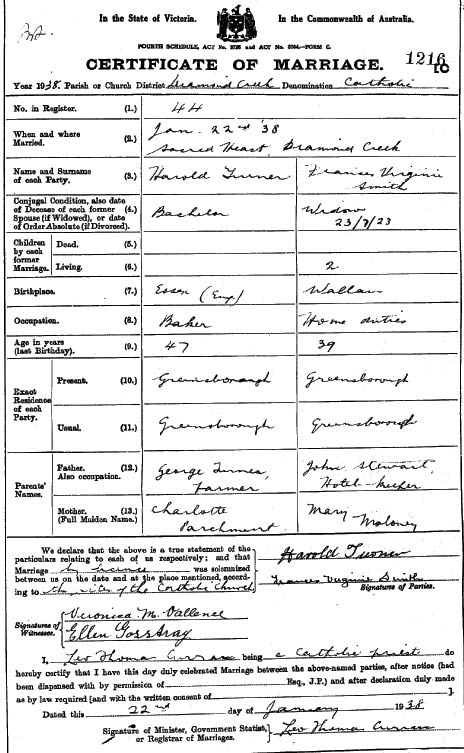 In the State of Victoria. In the Commonwealth of Australia.
FOURTH SCHEDULE, ACT No. 3726 AND ACT No. 3764.—FORM C.
CERTIFICATE OF MARRIAGE. 1216
Year 1938. Parish or Church District Diamond Creek Denomination Catholic
No. in Register (1.) 44
When and where Married. (2.) Jan. 22nd '38
Sacred Heart, Diamond Creek
Name and Surname of each Party. (3.) Harold Turner Frances Virginie Smith
Conjugal Condition, also date of Decease of each former Spouse (if Widowed), or date of Order Absolute (if Divorced). (4.) Bachelor Widow 23/7/23
Children by each former Marriage. Dead. (5.)
Living. (6.) 2
Birthplace. (7.) Essex (Eng) Wallan
Occupation. (8.) Baker Home duties
Age in years (last Birthday). (9.) 47 39
Exact Residence of each Party. Present. (10.) Greensborough Greensborough
Usual. (11.) Greensborough Greensborough
Parents' Names. Father. Also occupation. (12.) George Turner, Farmer John Stewart, Hotel-keeper
Mother. (Full Maiden Name.) (13.) Charlotte Parchment Mary Moloney
We declare that the above is a true statement of the
particulars relating to each of us respectively; and that
Marriage by licence was solemnized
between us on the date and at the place mentioned, accord-
ing to the rites of the Catholic Church
Harold Turner
Frances Virginie Smith
Signatures of Parties.
Signatures of Witnesses. Veronica M. Vallence
Ellen
I, Leo Thomas Curran being a Catholic priest do
hereby certify that I have this day duly celebrated Marriage between the above-named parties, after notice (had
been dispensed with by permission of Esq., J.P.) and after declaration duly made
as by law required [and with the written consent of
Dated this 22nd day of January 1938
Signature of Minister, Government Statist, or Registrar of Marriages. Leo Thomas Curran